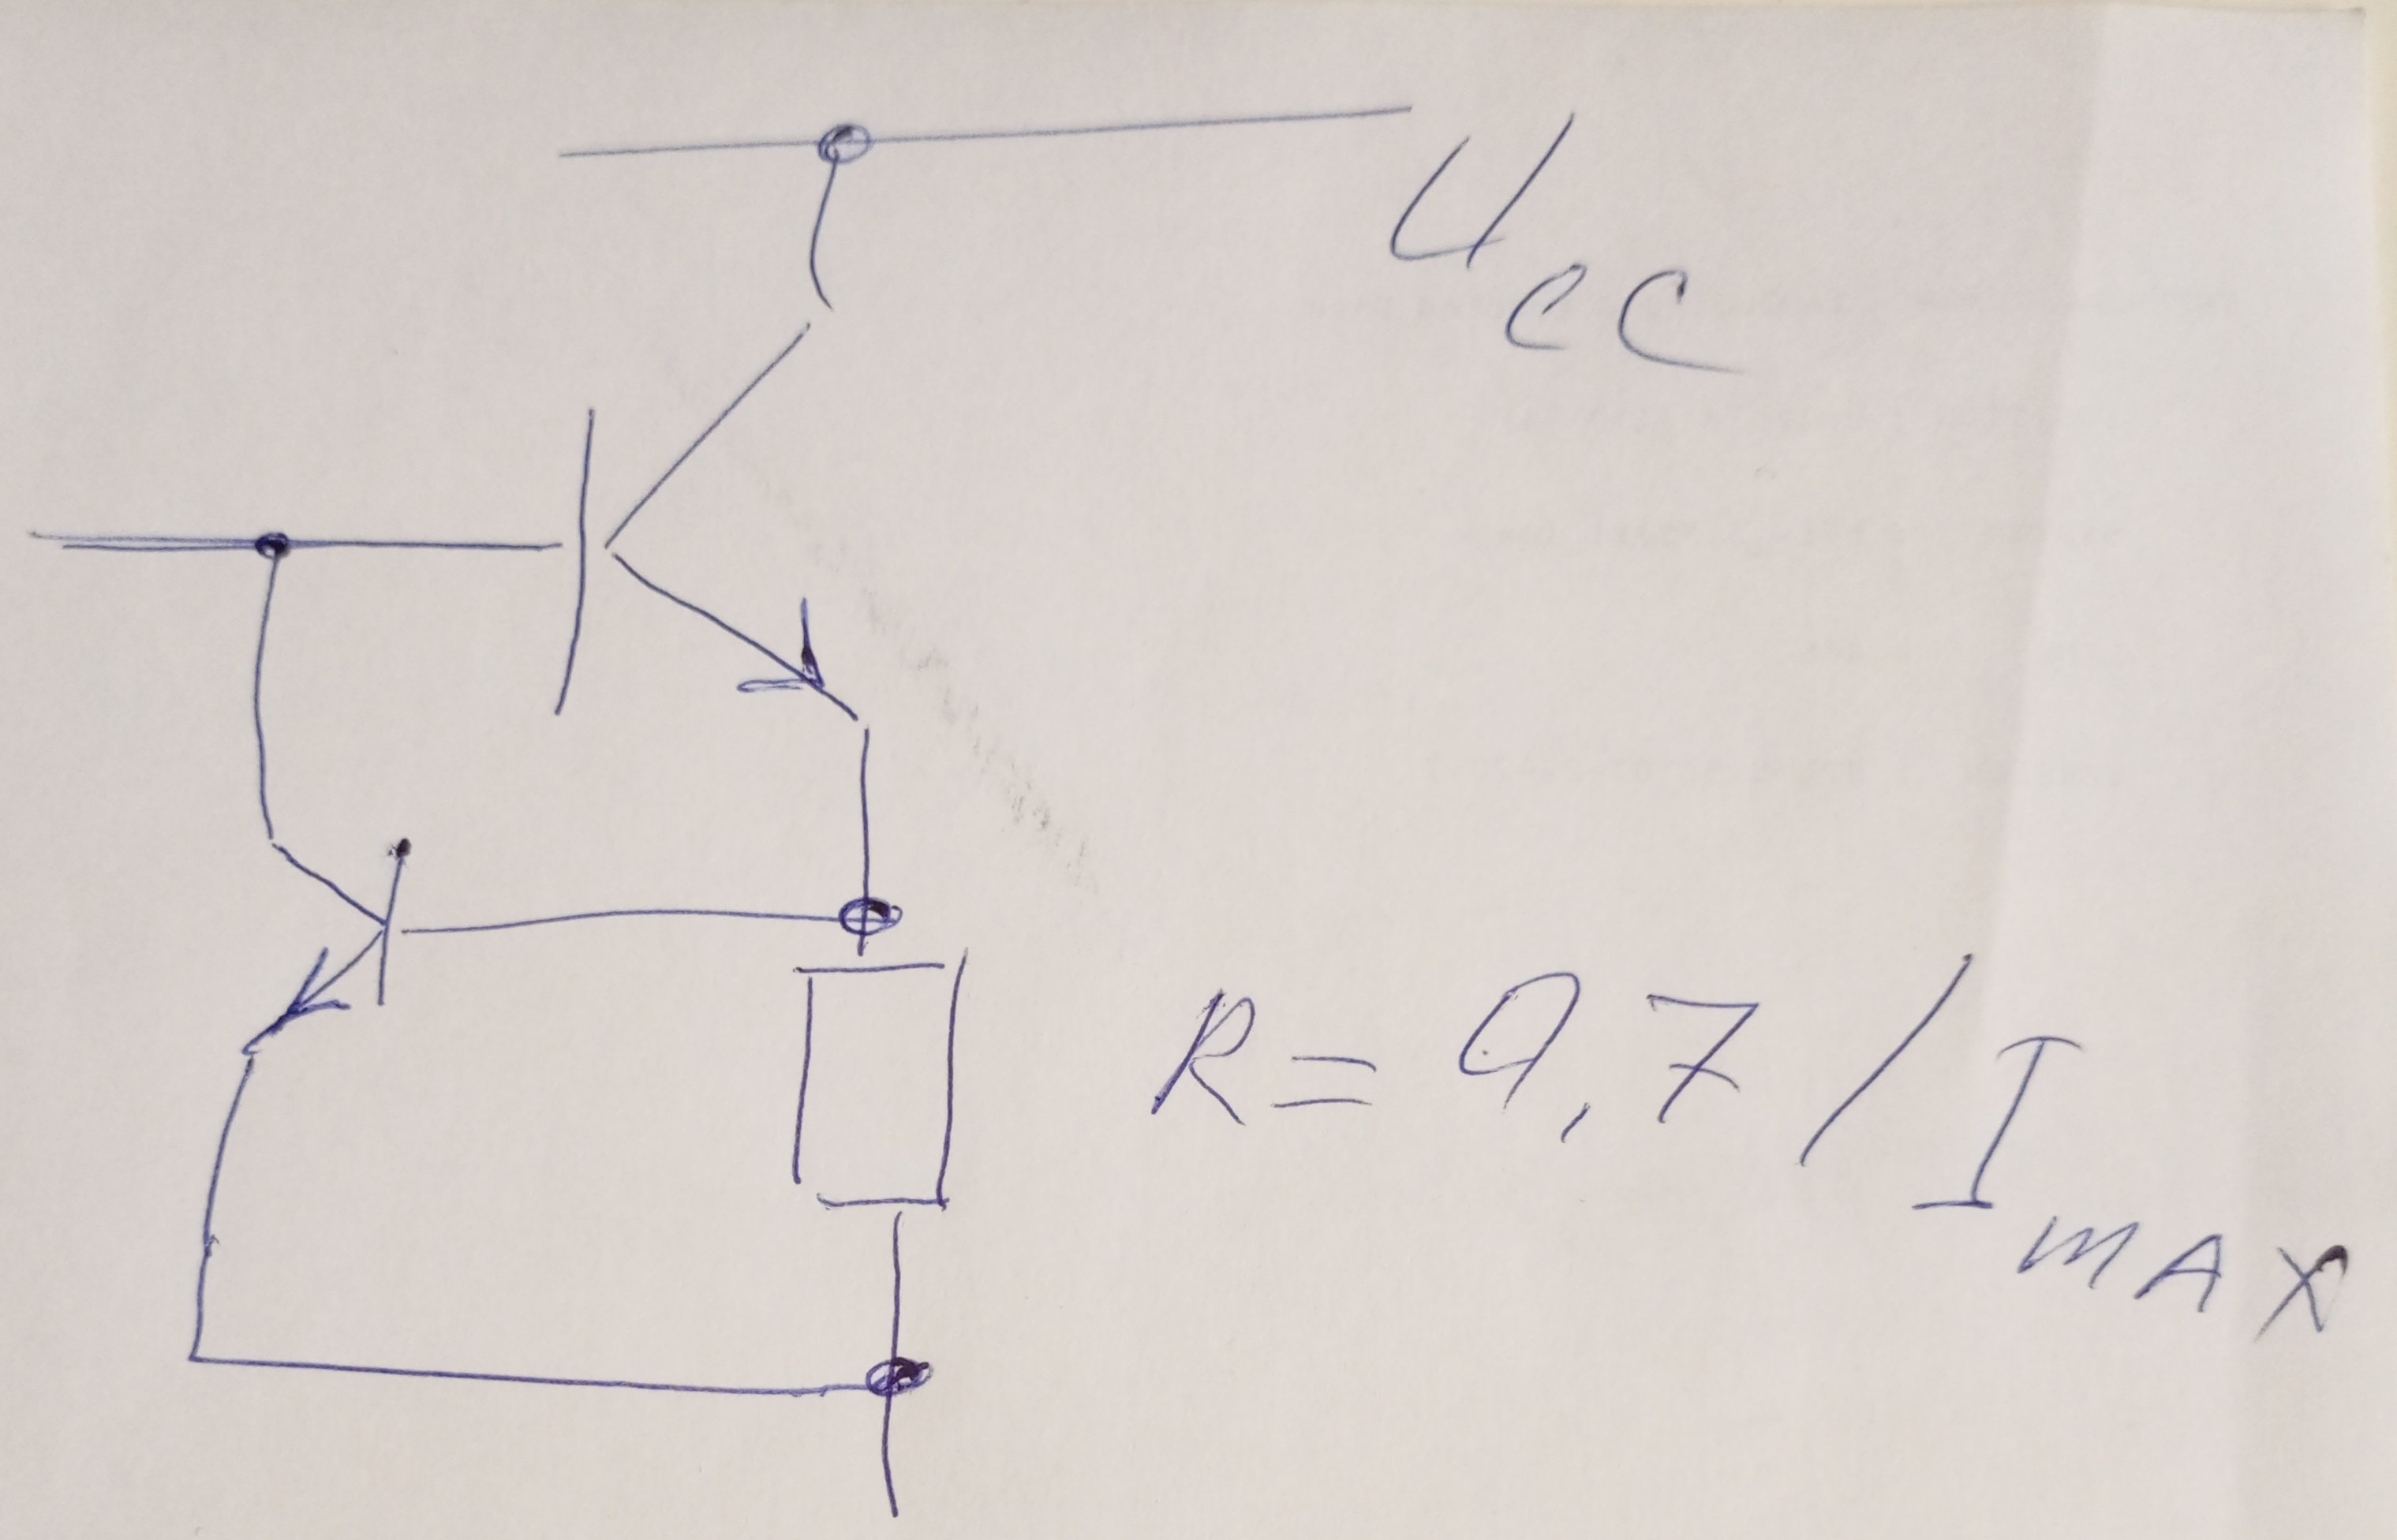 U CC
R = 0,7 / I MAX